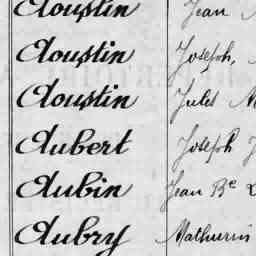 Aoustin Jean
Aoustin Joseph,
Aoustin Jules M
Aubert Joseph J
Aubin Jean Bte L
Aubry Mathurin